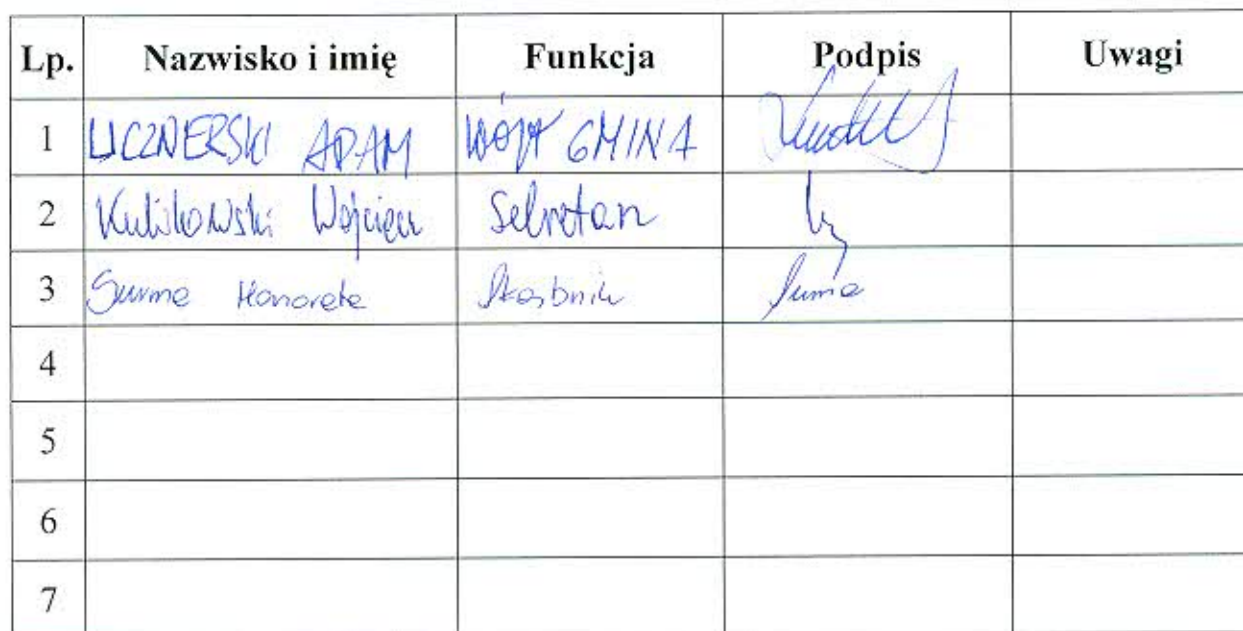 Lp. Nazwisko i imię Funkcja Podpis Uwagi
1 LICZNERSKI ADAM WÓJT GMINA
2 Kulikowski Wojciech Sekretarz
3 Surma Honorata Skarbnik Surma
4
5
6
7